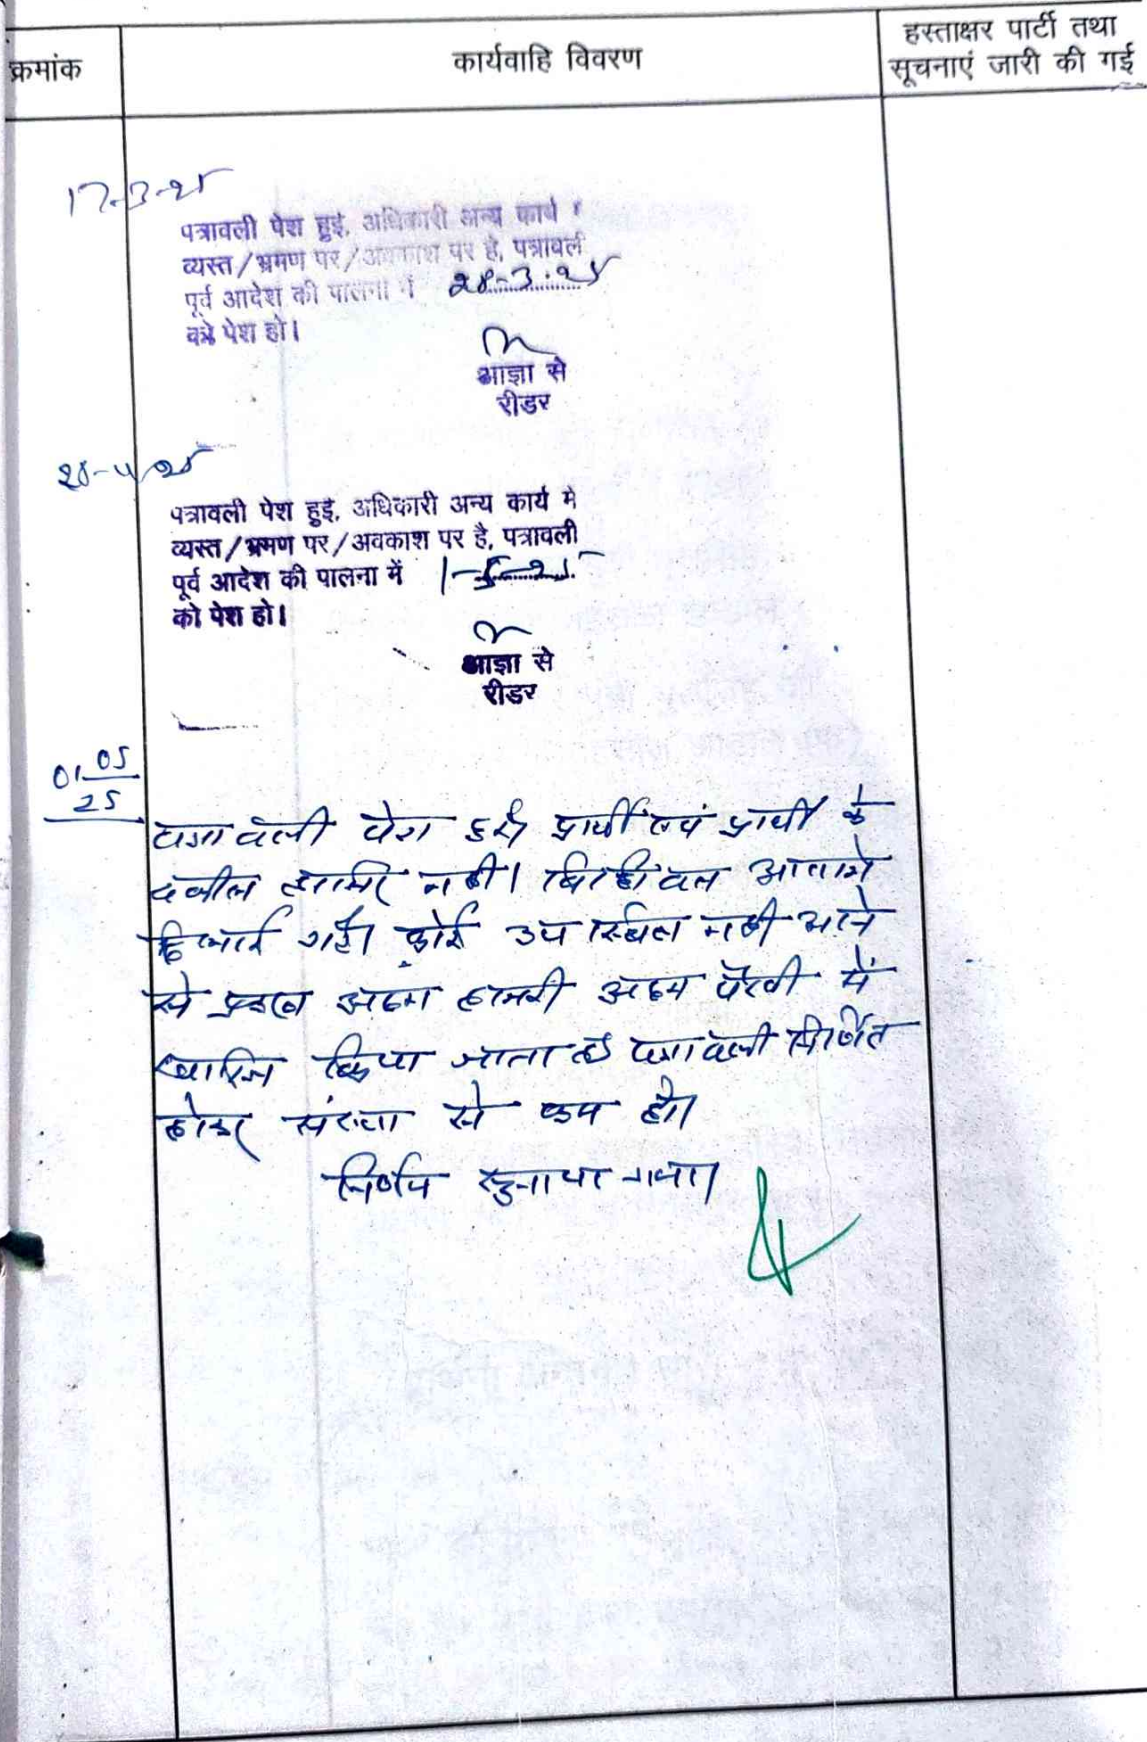 क्रमांक
कार्यवाहि विवरण
हस्ताक्षर पार्टी तथा
सूचनाएं जारी की गई
17-3-25
पत्रावली पेश हुई, अधिकारी अन्य कार्य
व्यस्त/भ्रमण पर/अवकाश पर है, पत्रावली
पूर्व आदेश की पालना में 28-3-25
को पेश हो।
आज्ञा से
रीडर
पत्रावली पेश हुई, अधिकारी अन्य कार्य मे
व्यस्त/भ्रमण पर/अवकाश पर है, पत्रावली
पूर्व आदेश की पालना में 1-5-25
को पेश हो।
आज्ञा से
रीडर
01.05
25
पत्रावली पेश हुई प्रार्थी एवं प्रार्थी के
वकील हाजिर नही। आवाजे
दिलाई गई। कोई उपस्थित नही आने
से प्रकरण अदम हाजरी अदम पैरवी में
खारिज किया जाता है पत्रावली निर्णित
होकर संख्या से कम हो।
निर्णय सुनाया गया।